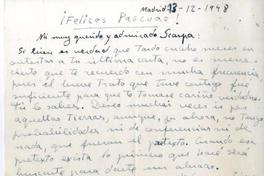 Madrid 23-12-1948
¡Felices Pascuas!
Mi muy querido y admirado Scarpa:
Si bien es verdad que tardo muchos meses en
contestar a tu última carta, no es menos
cierto que te recuerdo con mucha frecuencia,
pues el breve trato que tuve contigo fue
suficiente para que te tomase cariño verdadero.
Tú lo sabes. Deseo muchas veces ir por
aquellas Tierras, aunque, por ahora, no tengo
probabilidades ni de conferencias ni de
nada, que fueran el pretexto. Cuando ese
pretexto exista lo primero que haré será
buscarte para darte un abrazo.